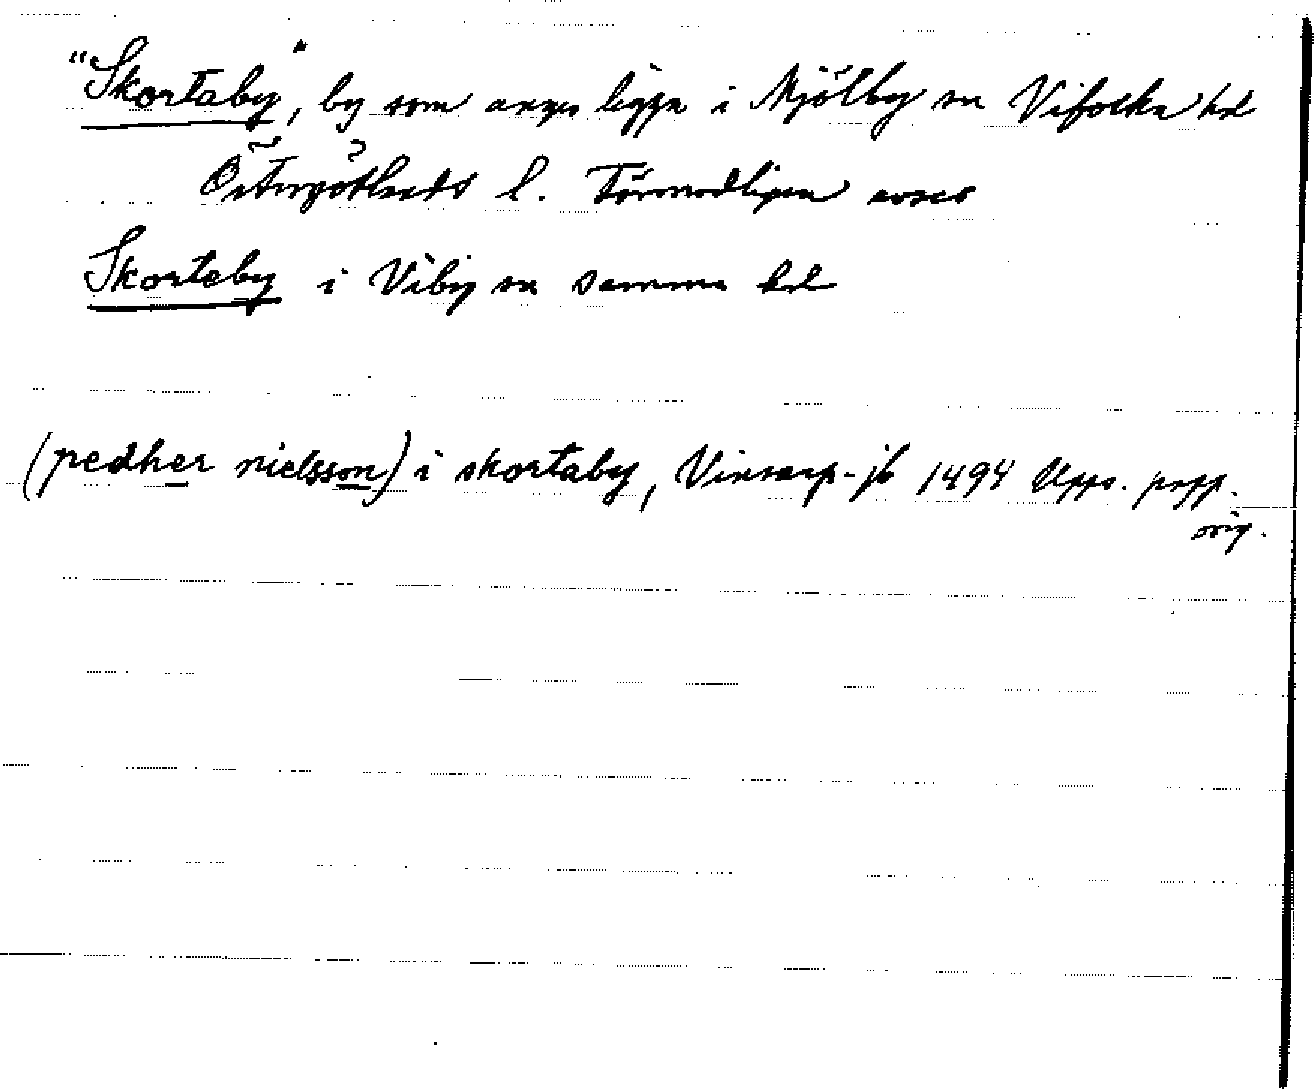 "Skortaby", by som anges ligga i Mjölby sn Vifolka hd
Östergötlands l. Förmodligen avses
Skorteby i Viby sn samma hd
(pedher nielsson) i skortaby, Vinsarp-jb 1494 Upps. papp.
orig.